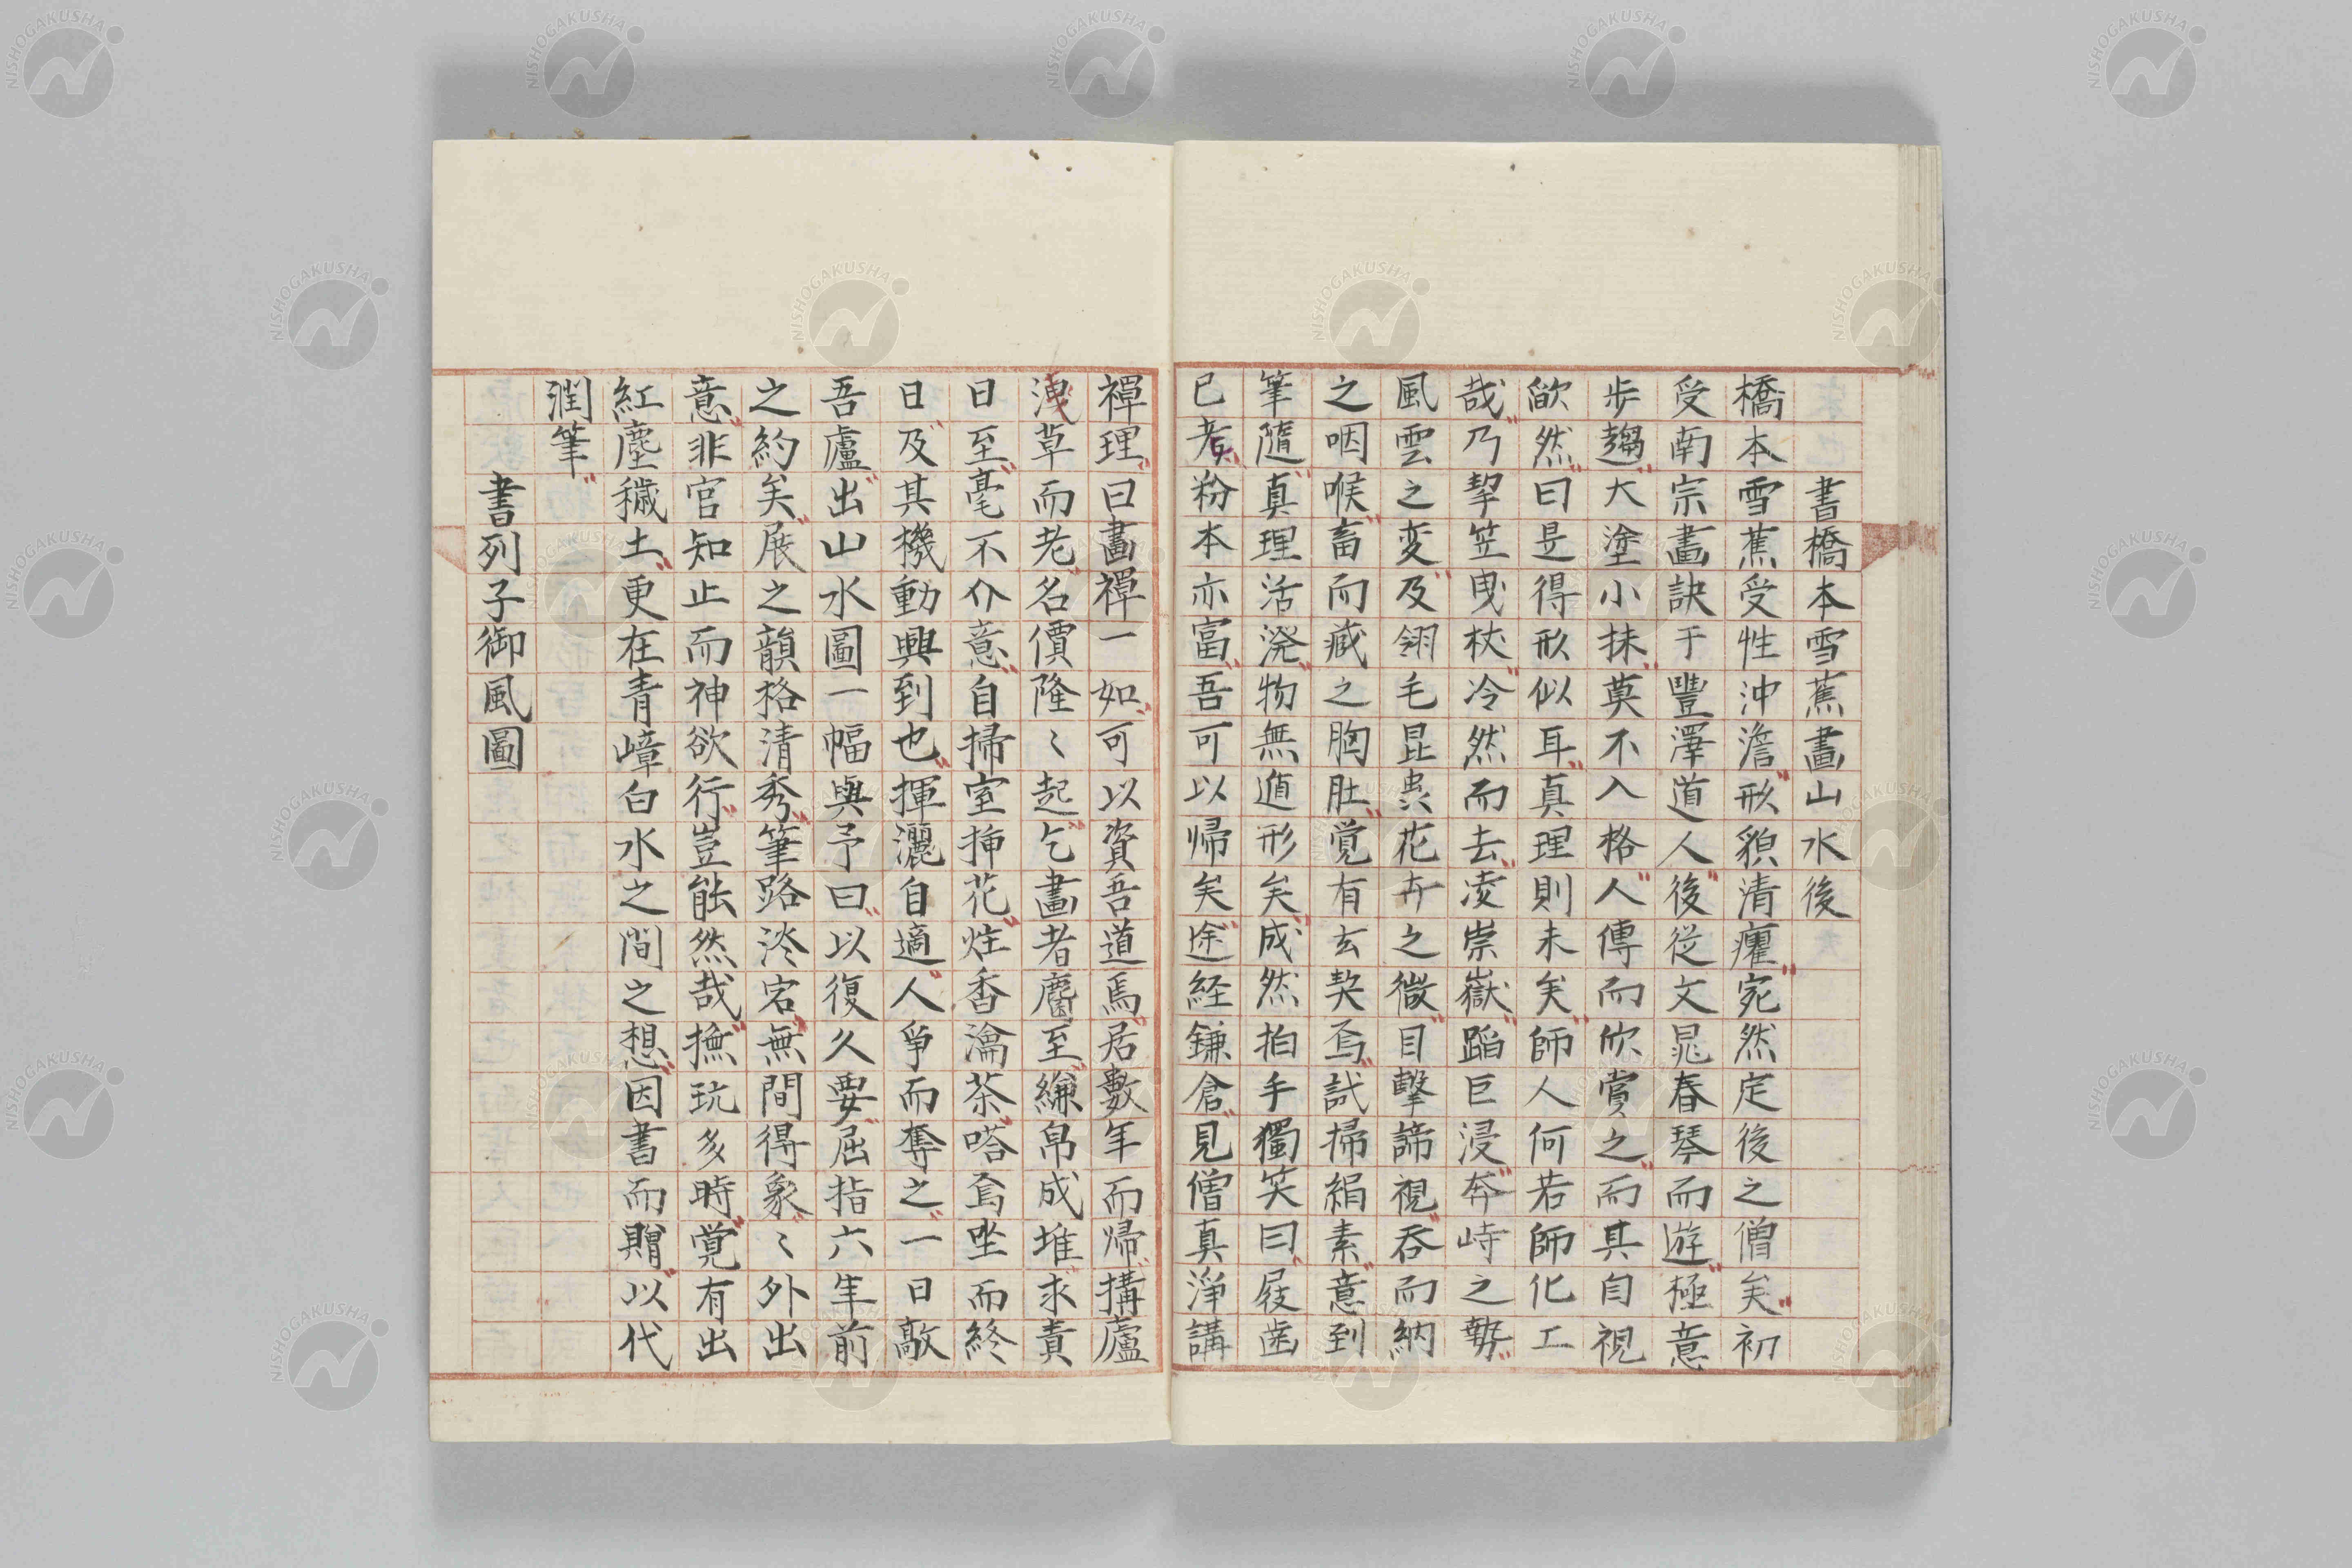 書橋本雪蕉畫山水後
橋本雪蕉受性沖澹形貌清癯宛然定後之僧矣初
受南宗畫訣于豐澤道人後從文晁春琴而遊極意
歩趨大塗小抹莫不入格人傳而欣賞之而其自視
欿然曰是得形似耳真理則未矣師人何若師化工
哉乃挈笠曳杖冷然而去凌崇嶽蹈巨浸奔峙之勢
風雲之変及翎毛昆虫花卉之微目擊諦視呑而納
之咽喉畜而藏之胸肚覚有玄契焉試掃絹素意到
筆隨真理活溌物無遁形矣成然拍手獨笑曰屐歯
已老粉本亦富吾可以帰矣途経鎌倉見僧真淨講
禪理曰畫禪一如可以資吾道焉居數年而帰搆廬
洩草而老名價隆〻起乞畫者麕至縑帛成堆求責
日至毫不介意自掃室挿花炷香瀹茶嗒焉坐而終
日及其機動興到也揮灑自適人爭而奪之一日敲
吾廬出山水圖一幅與予曰以復久要屈指六年前
之約矣展之韻格清秀筆路淡宕無間得象〻外出
意非官知止而神欲行豈能然哉撫玩多時覚有出
紅塵穢土更在青嶂白水之間之想因書而贈以代
潤筆
書列子御風圖
NISHOGAKUSHA